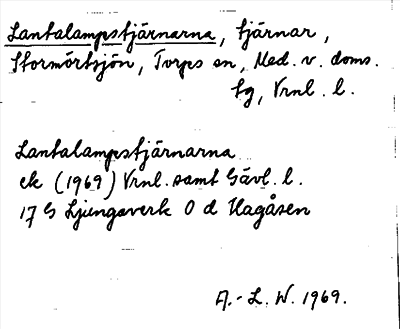 Lantalampstjärnarna, tjärnar,
Stormörtsjön, Torps sn, Med. v. doms.
tg, Vrnl. l.
Lantalampstjärnarna
ek (1969) Vrnl. samt Gävl. l.
17 G Ljungaverk 0 d Hagåsen
A.-L. W. 1969.